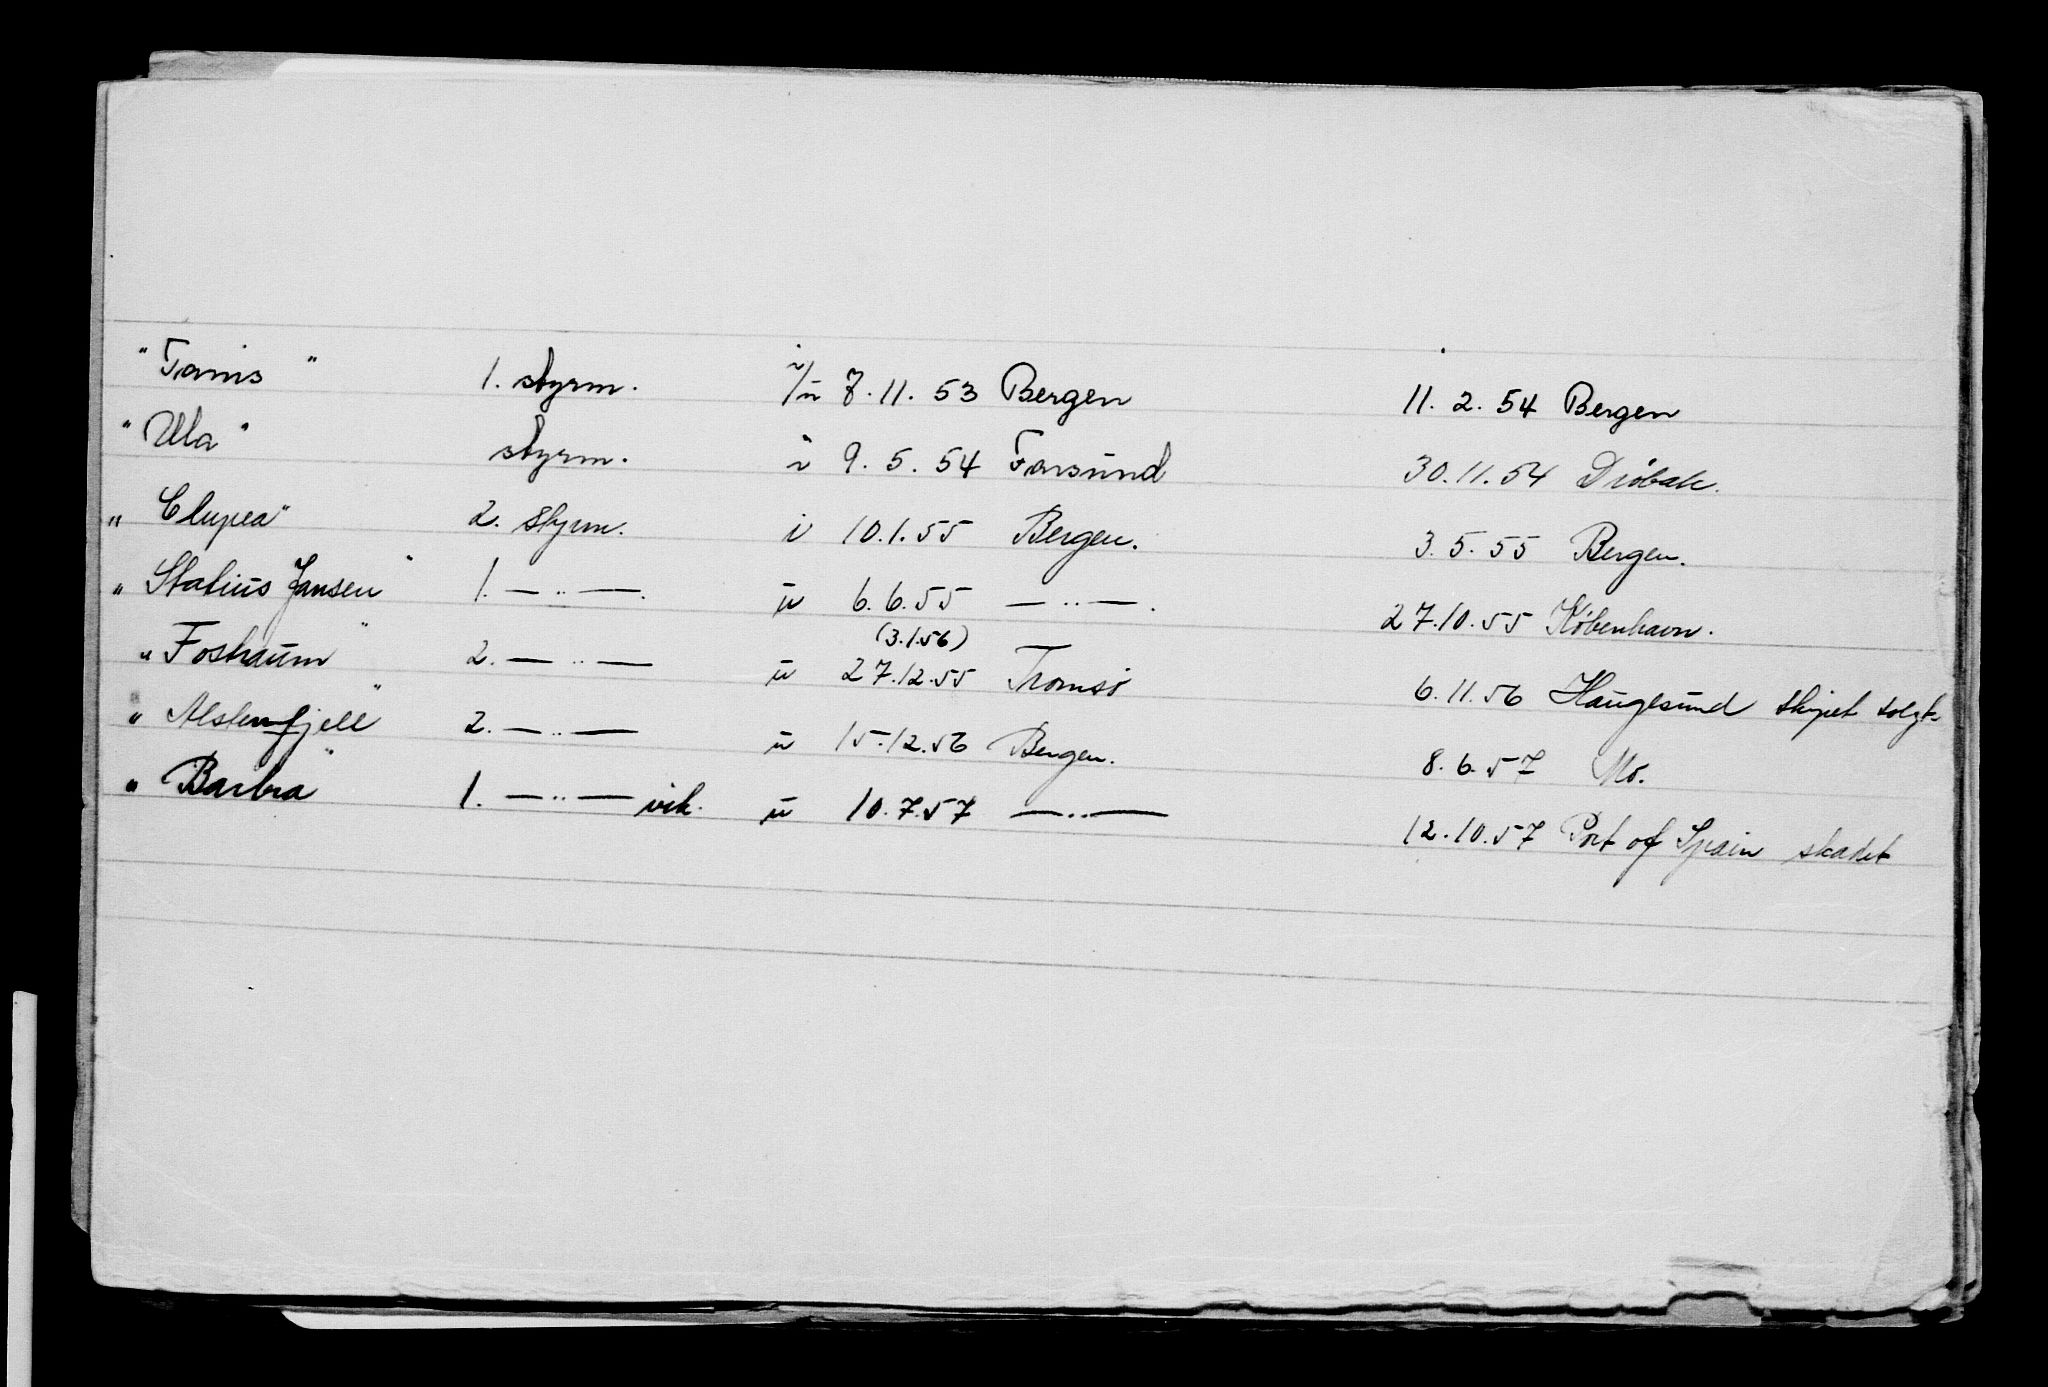 "Tanis" 1. styrm. i/u 7.11.53 Bergen 11.2.54 Bergen
"Ula" styrm. i 9.5.54 Farsund 30.11.54 Drøbak.
"Clupea" 2. styrm. i 10.1.55 Bergen. 3.5.55 Bergen.
"Statius Jansen" 1. — " —. u 6.6.55 — " —. 27.10.55 København.
(3.1.56)
"Foshaum" 2. — " — u 27.12.55 Tromsø 6.11.56 Haugesund skipet solgt
"Alstenfjell" 2. — " — u 15.12.56 Bergen. 8.6.57 Mo.
"Barbra" 1. — " — vik. u 10.7.57 — " — 12.10.57 Port of Spain skadet